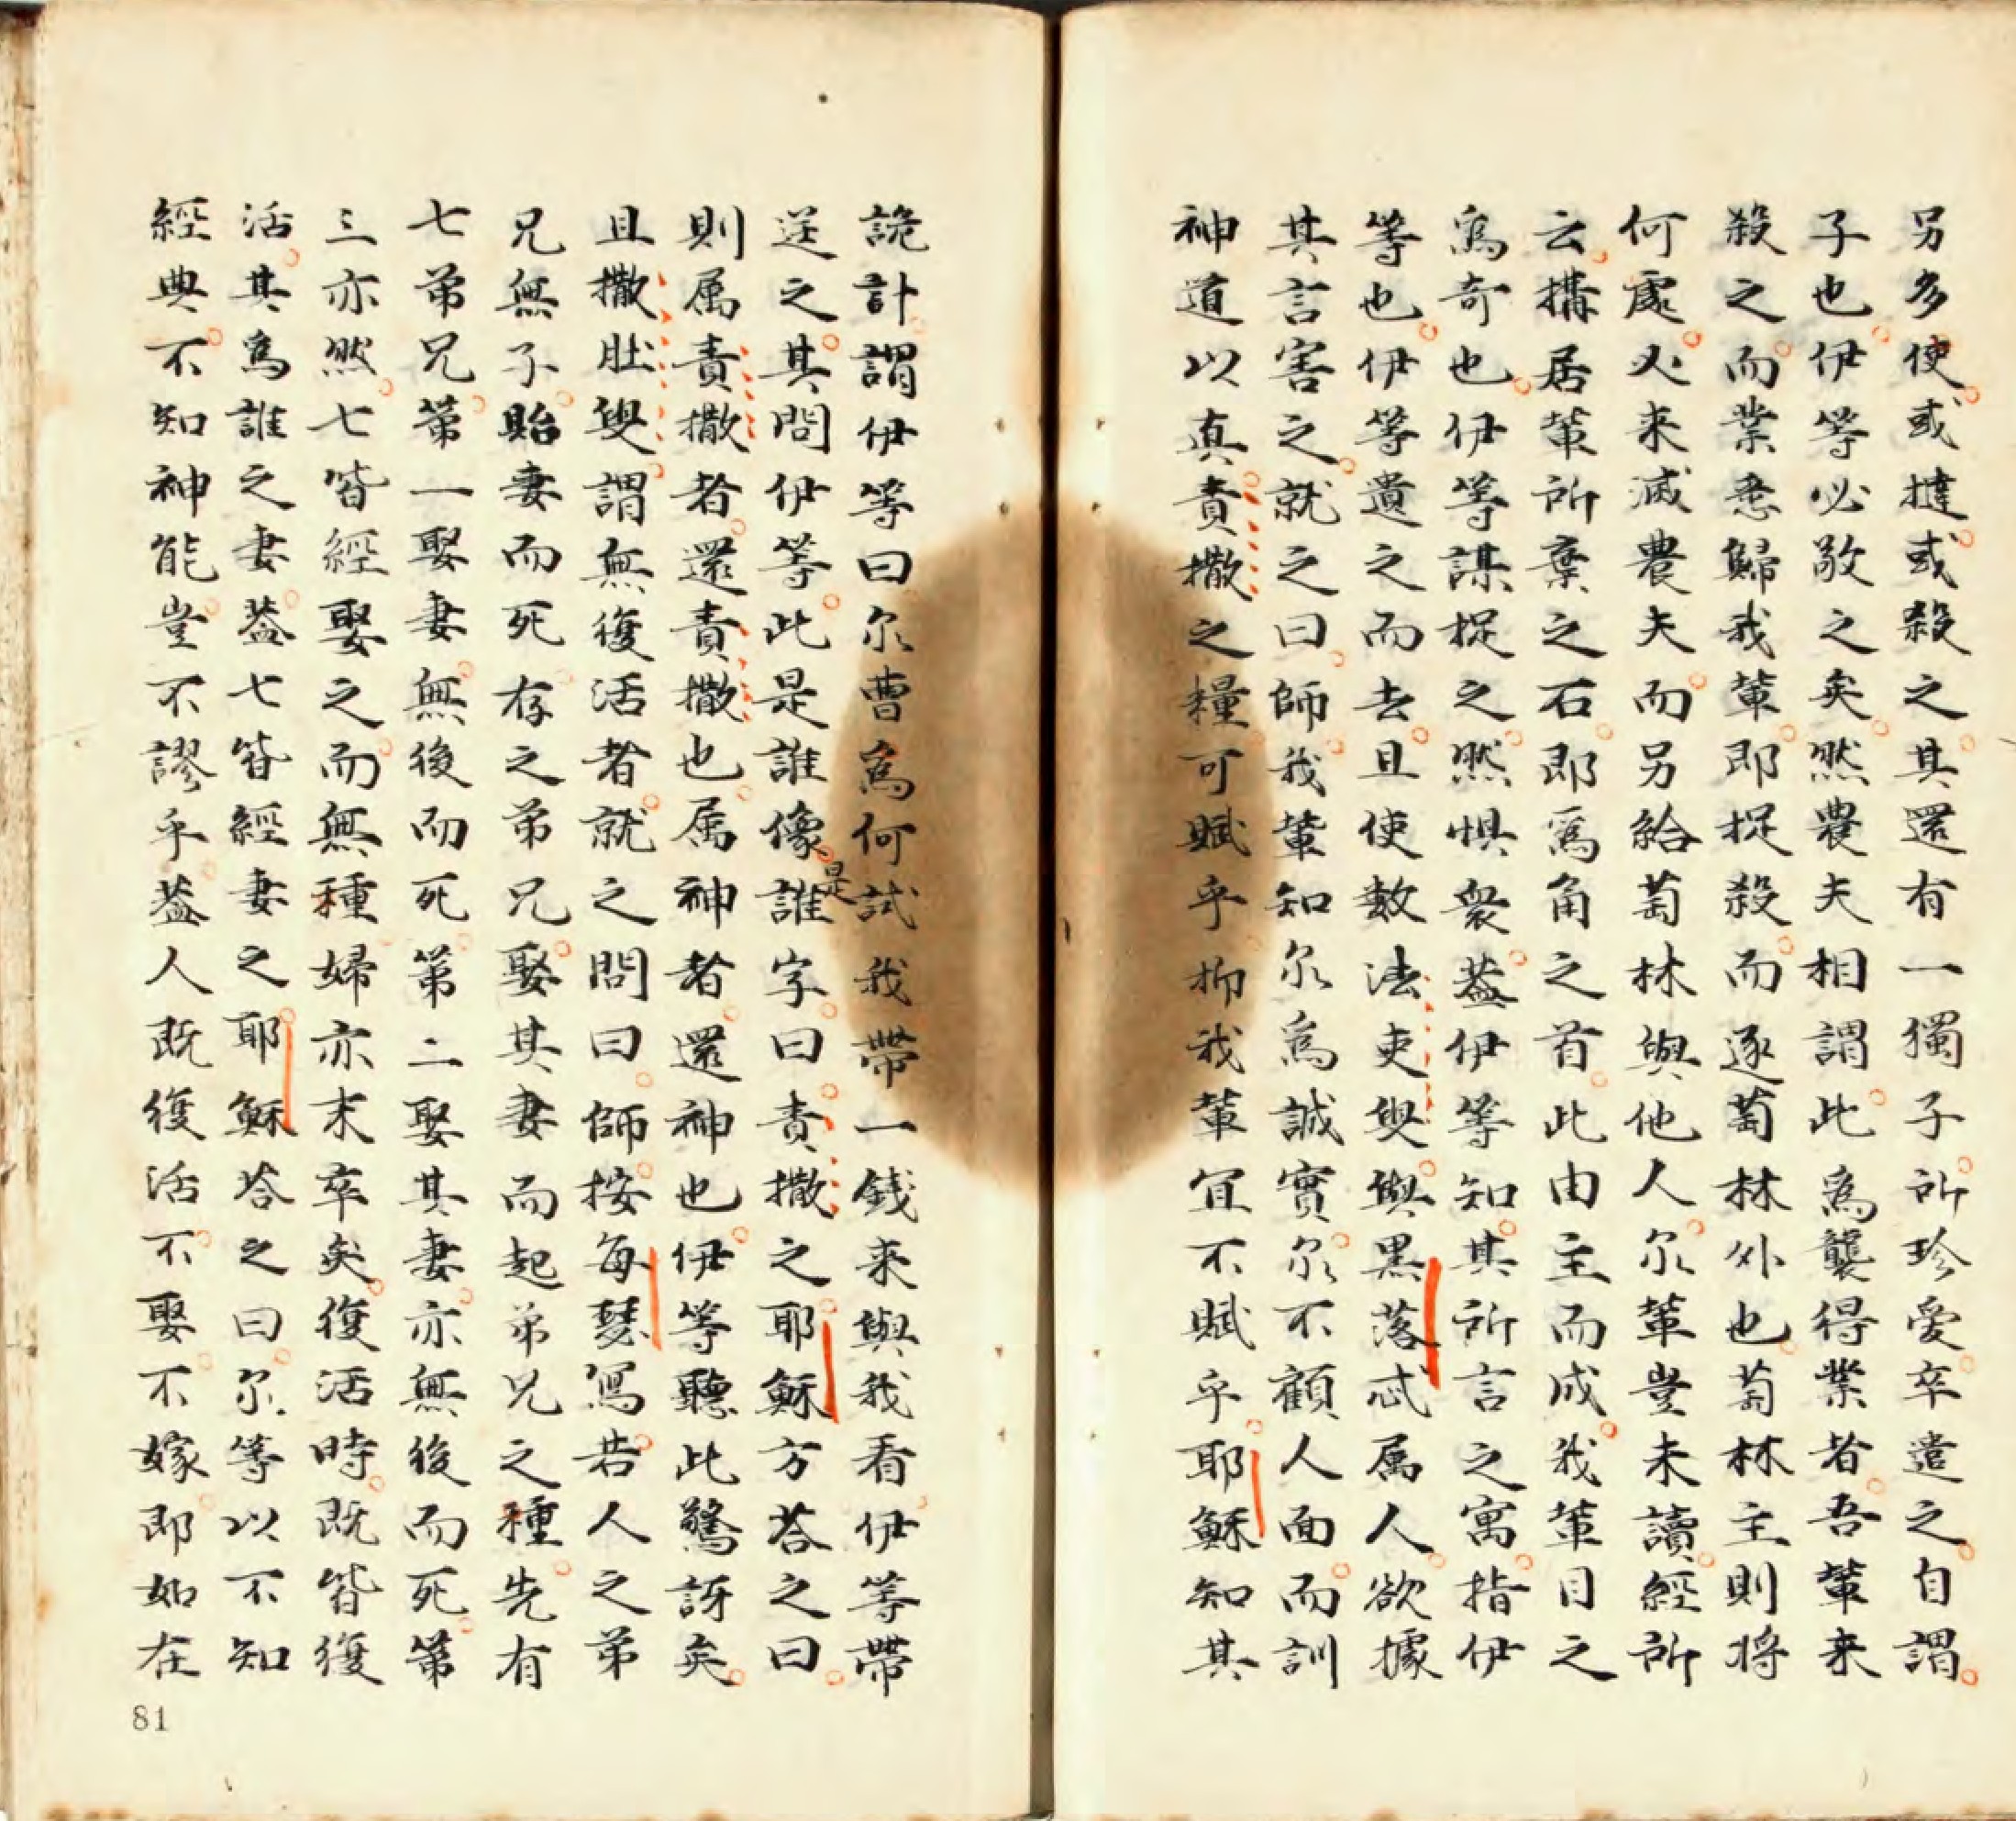 另多使或撻或殺之其還有一獨子所珍愛卒遣之自謂
子也伊等必敬之矣然農夫相謂此爲襲得業者吾軰来
殺之而業悉歸我軰即捉殺而逐萄林外也萄林主則将
何處必来滅農夫而另給萄林與他人尔軰豈未讀經所
云搆居軰所棄之石即爲角之首此由主而成我軰目之
爲奇也伊等謀捉之然惧衆葢伊等知其所言之寓指伊
等也伊等遺之而去且使數法吏叟與黑落忒属人欲據
其言害之就之曰師我軰知尔爲誠實尔不顧人面而訓
神道以真責撒之糧可賦乎抑我軰宜不賦乎耶穌知其
詭計謂伊等曰尔曹爲何試我帶一錢来與我看伊等帶
送之其問伊等此是誰像是誰字曰責撒之耶穌方荅之曰
則属責撒者還責撒也属神者還神也伊等聽此驚訝矣
且撒肚叟謂無復活者就之問曰師按每瑟寫若人之弟
兄無子貽妻而死存之弟兄娶其妻而起弟兄之種先有
七弟兄第一娶妻無後而死第二娶其妻亦無後而死第
三亦然七皆經娶之而無種婦亦末卒矣復活時既皆復
活其爲誰之妻葢七皆經妻之耶穌荅之曰尔等以不知
經典不知神能豈不謬乎葢人既復活不娶不嫁即如在
81